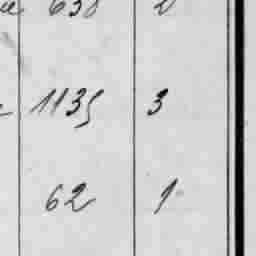 638
1135 3
62 1